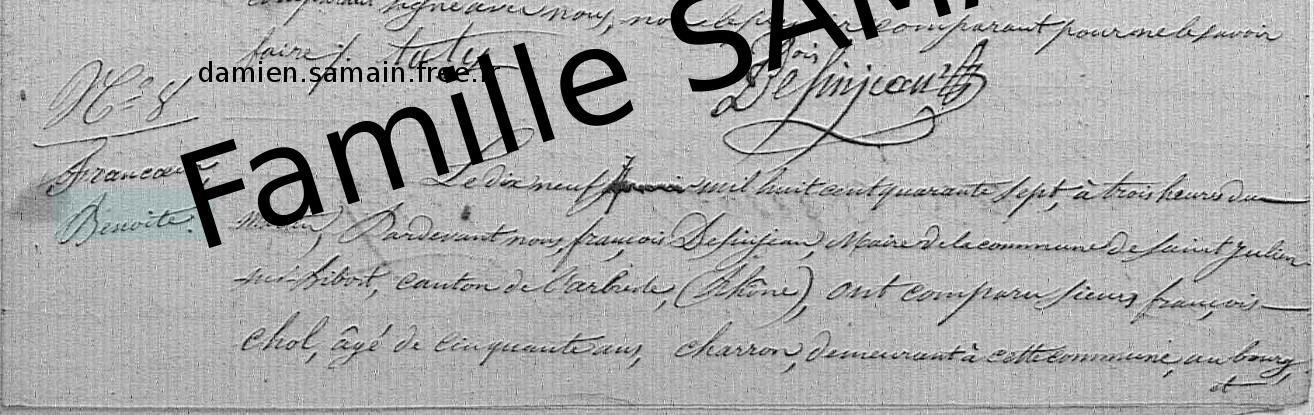 comparant signé avec nous, non le premier comparant pour ne le savoir
faire /.
Desinjean
damien.samain.free.fr
Famille SAMA
N.º 8
Francoeur
Benoite.
Le dix neuf Janvier mil huit cent quarante sept, à trois heures du
matin, Pardevant nous, françois Desinjean, Maire de la commune de Saint Julien
sur Bibost, canton de l'arbresle, (Rhône), ont comparu sieurs françois
Chol, âgé de cinquante ans, charron, demeurant à cette commune, au bourg,
et